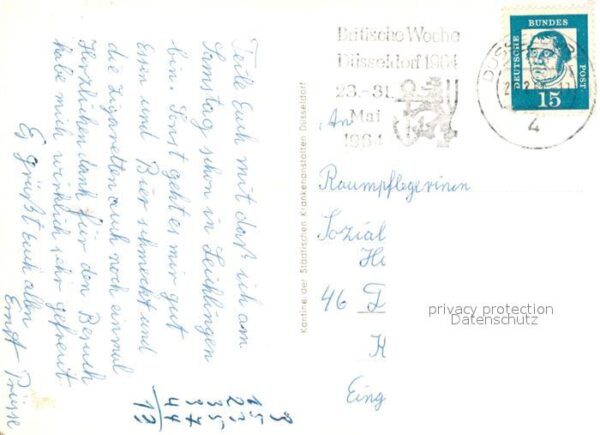 Teile Euch mit daß ich am
Samstag schon in Leichlingen
bin. Sonst geht es mir gut
Essen und Bier schmeckt und
die Zigaretten auch noch einmal
Herzlichen dank für den Besuch
habe mich wirklich sehr gefreut.
Es grüßt Euch allen
Ernst Prüsse
Kantine der Städtischen Krankenanstalten Düsseldorf
Britische Woche
Düsseldorf 1964
23.-31.
Mai
1964
DEUTSCHE BUNDES POST
15
4
An
Raumpflegerinen
Sozial
46
K
Eing
privacy protection
Datenschutz
13